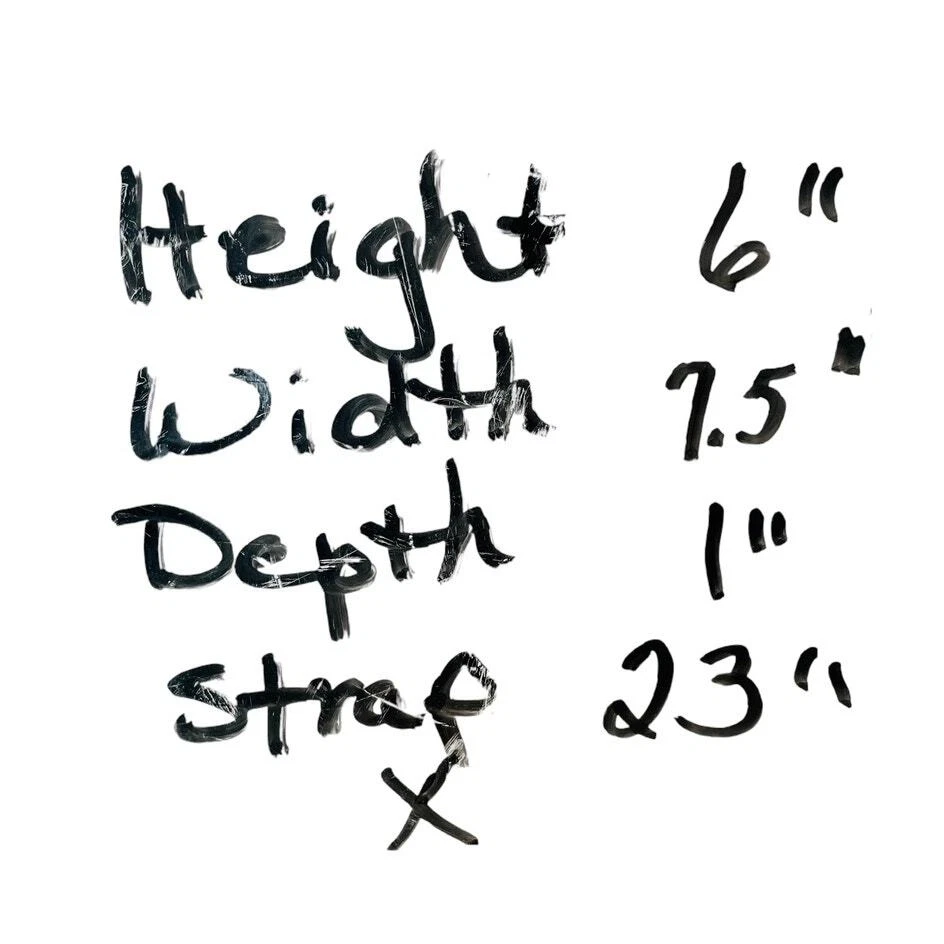 Height 6"
Width 7.5"
Depth 1"
Strap 23"
X